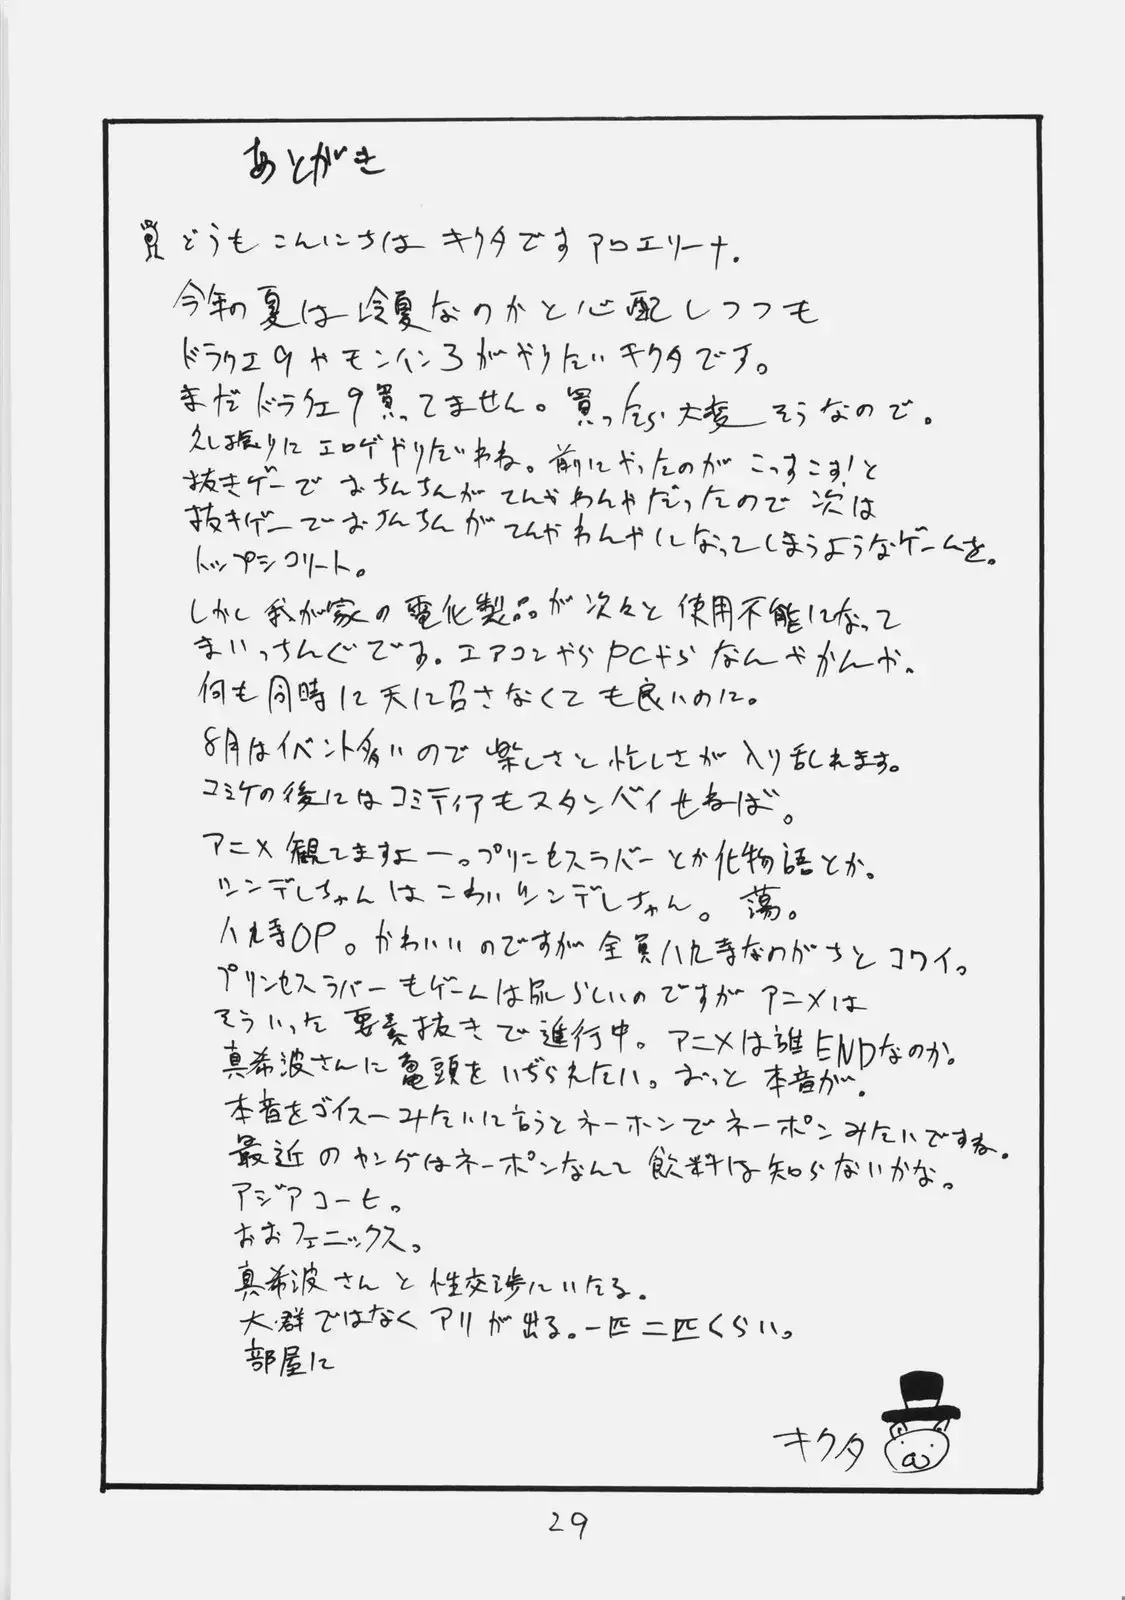 あとがき
どうもこんにちは キクタです アロエリーナ.
今年の夏は冷夏なのかと心配しつつも
ドラクエ9やモンイン3がやりたいキクタです。
まだドラクエ9買ってません。買ったら大変そうなので。
久し振りにエロゲやりたいわね。前にやったのが こっすこす!と
抜きゲーでおちんちんがてんやわんやだったので 次は
抜きゲーでおちんちんがてんやわんやになってしまうようなゲームを。
トップシコリート。
しかし我が家の電化製品が次々と使用不能になって
まいっちんぐです。エアコンやらPCやらなんやかんや。
何も同時に天に召さなくても良いのに。
8月はイベント多いので楽しさと忙しさが入り乱れます。
コミケの後にはコミティアもスタンバイせねば。
アニメ観てますよー。プリンセスラバーとか化物語とか。
ツンデレちゃんはこわいツンデレちゃん。蕩。
八九寺OP。かわいいのですが全員八九寺なのがちとコワイ。
プリンセスラバーもゲームは尿らしいのですがアニメは
そういった要素抜きで進行中。アニメは誰ENDなのか。
真希波さんに亀頭をいぢられたい。おっと本音が。
本音をゴイスーみたいに言うとネーホンでネーポンみたいですね。
最近のヤングはネーポンなんて飲料は知らないかな。
アジアコーヒ。
おおフェニックス。
真希波さんと性交渉にいたる。
大群ではなくアリが出る。一匹二匹くらい。
部屋に
キクタ
29